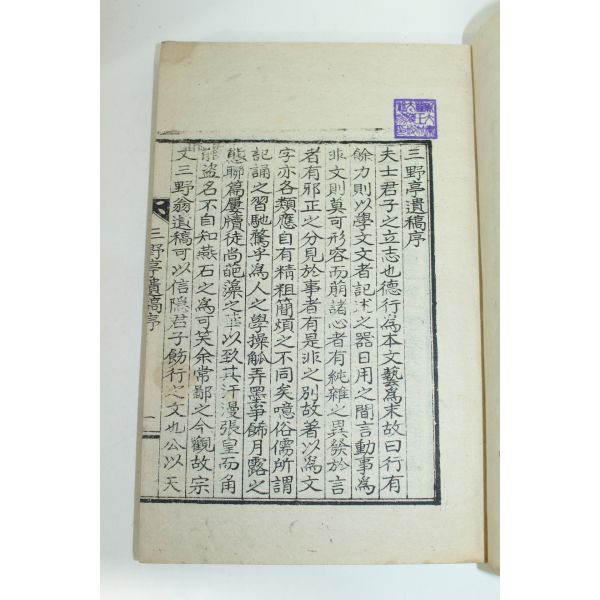 三野亭遺稿序
夫士君子之立志也德行為本文藝為末故曰行有
餘力則以學文文者記述之器日用之間言動事為
非文則莫可形容而萠諸心者有純雜之異發於言
者有邪正之分見於事者有是非之別故著以為文
字亦各類應自有精粗簡煩之不同矣噫俗儒所謂
記誦之習馳騖乎為人之學操觚弄墨事餙月露之
態聯篇屢牘徒尚葩藻之華以致其汗漫張皇而角
能盜名不自知燕石之為可笑余常鄙之今觀故宗
丈三野翁遺稿可以信隱君子餝行之文也公以天
三野亭遺稿序
一